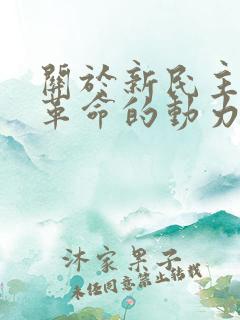 關於新民主
革命的動力
沐家果子
未經同意禁止轉載